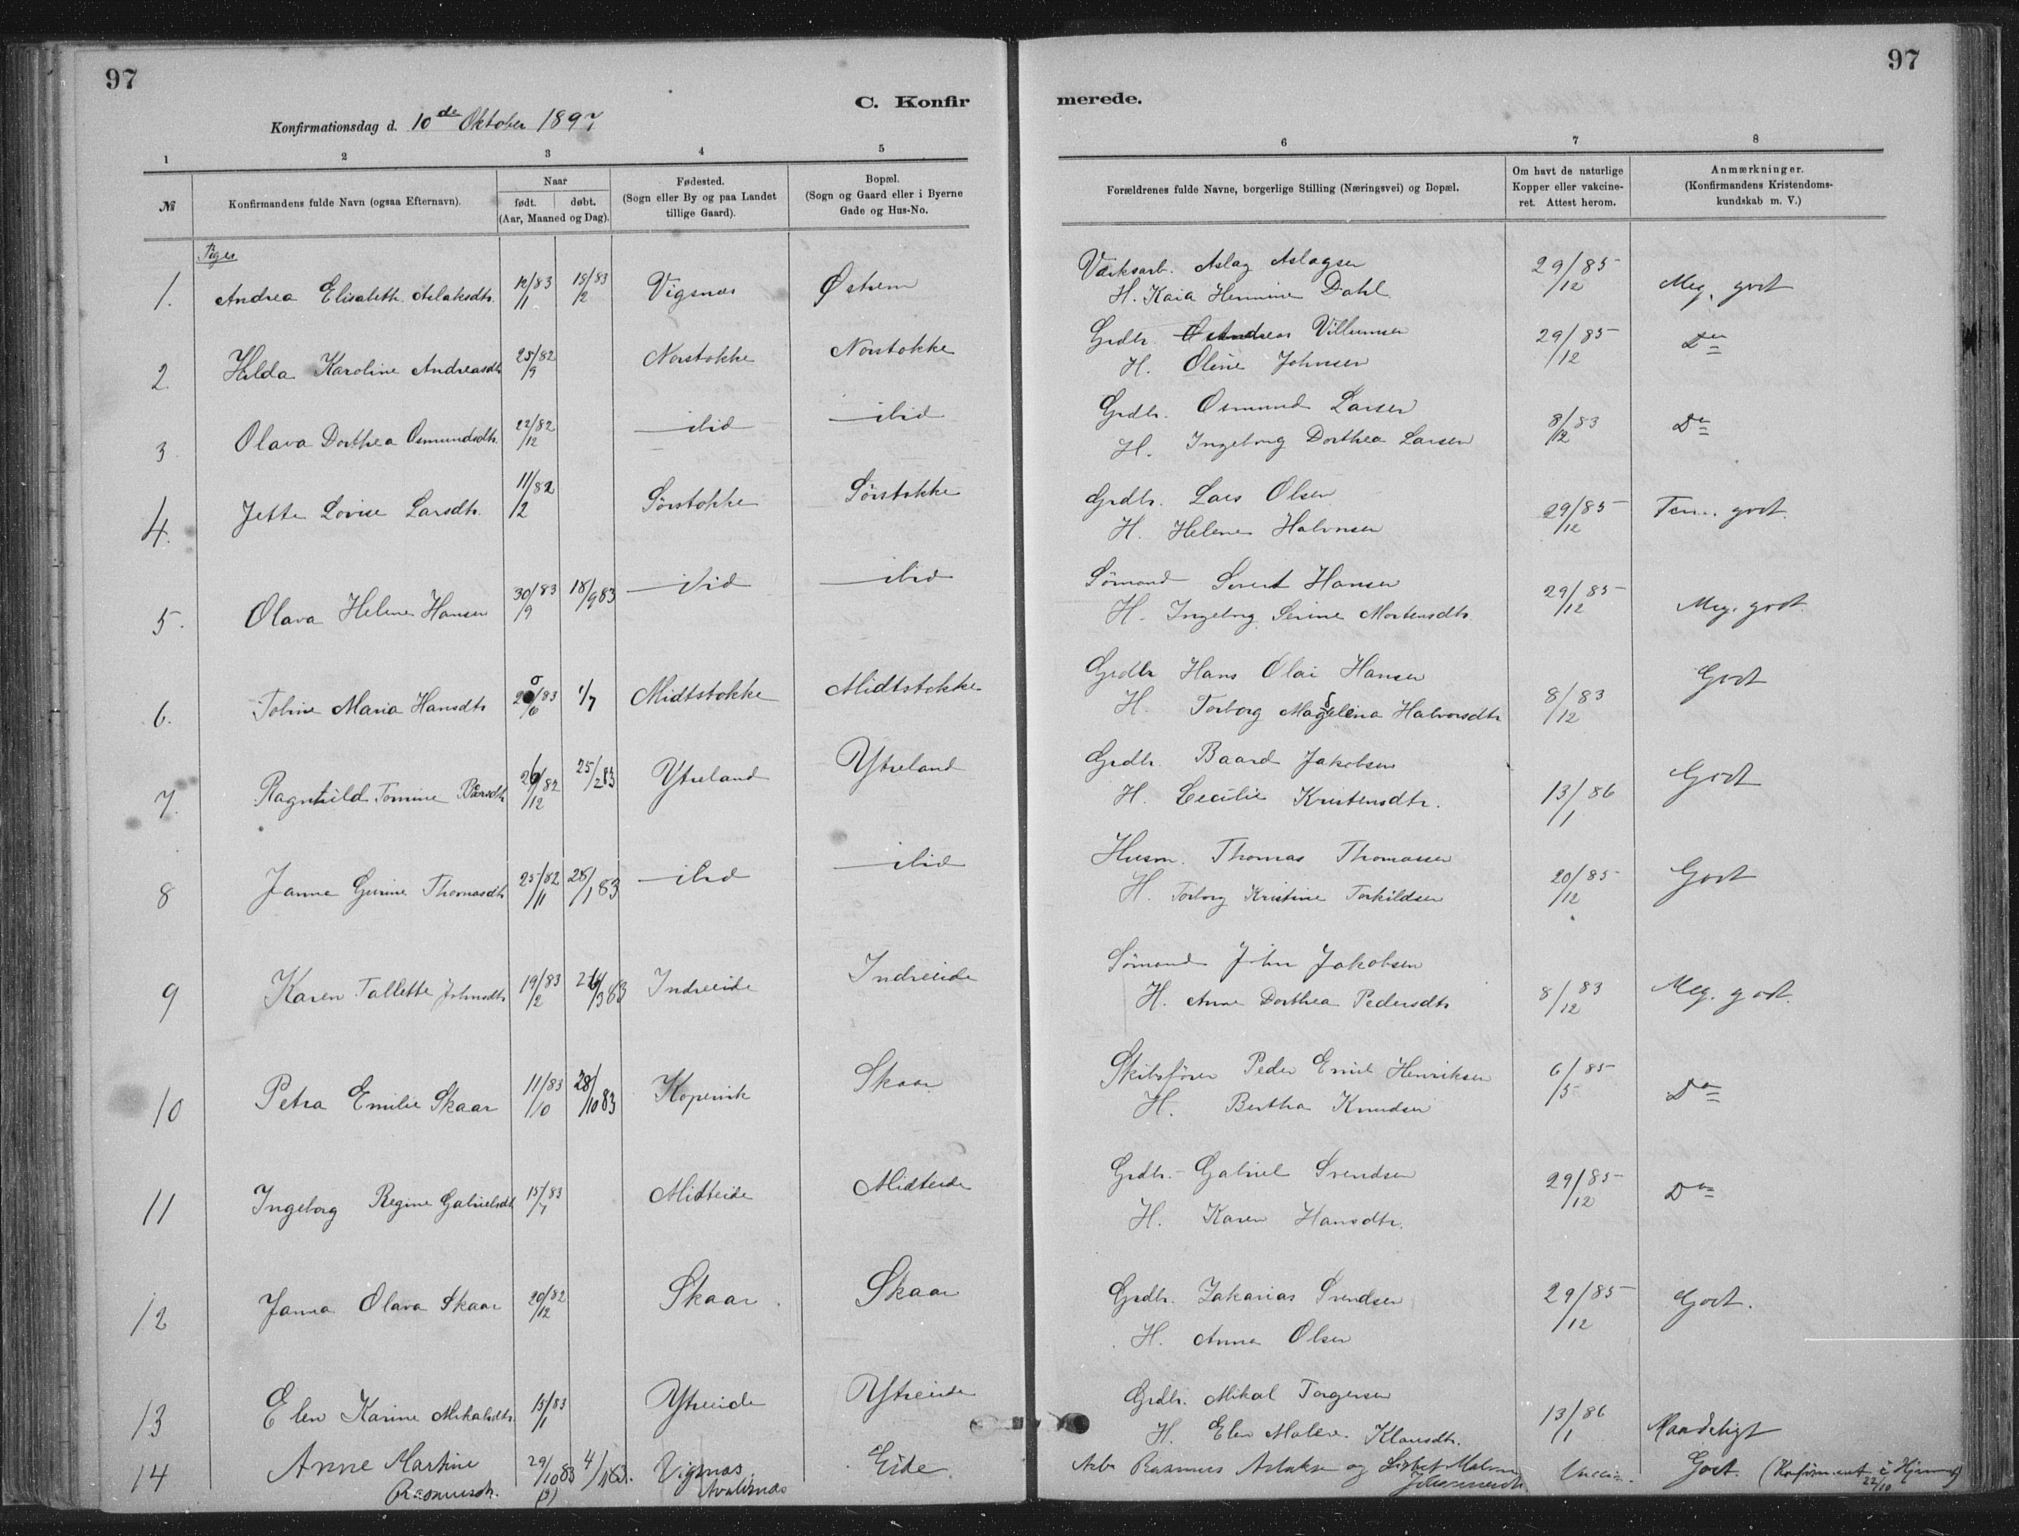 97
97
C. Konfir
merede.
Konfirmationsdag d. 10de Oktober 1897
1 2 3 4 5 6 7 8
№ Konfirmandens fulde Navn (ogsaa Efternavn).
Naar
født. døbt.
(Aar, Maaned og Dag).
Fødested.
(Sogn eller By og paa Landet
tillige Gaard).
Bopæl.
(Sogn og Gaard eller i Byerne
Gade og Hus-No.
Forældrenes fulde Navne, borgerlige Stilling (Næringsvei) og Bopæl.
Om havt de naturlige
Kopper eller vakcine-
ret. Attest herom.
Anmærkninger.
(Konfirmandens Kristendoms-
kundskab m. V.)
Piger
1. Andrea Elisabeth Aslaksdtr. 12/1 83 18/2 83 Vigsnæs Østrem
Værksarb. Aslag Aslagsen 29/12 85 Meg. godt
H. Kaia Hermine Dahl
2. Hilda Karoline Andreasdtr 25/9 82 Norstokke Norstokke
Grdbr. Andreas Villumsen 29/12 85 Do
H. Oline Johnsen
3 Olava Dorthea Osmundsdtr. 22/12 82 ibid ibid
Grdbr. Osmund Larsen 8/12 83 Do
H. Ingeborg Dorthea Larsen
4. Jette Lovise Larsdtr. 11/2 82 Sørstokke Sørstokke
Grdbr. Lars Olsen 29/12 85 godt.
H. Helene Halvorsen
5. Olava Helene Hansen 30/9 83 18/9 83 ibid ibid
Sømand Sivert Hansen 29/12 85 Meg. godt.
H. Ingeborg Serine Mortensdtr.
6. Tobine Maria Hansdtr 20/6 83 1/7 Midtstokke Midtstokke
Grdbr Hans Olai Hansen 8/12 83 Godt
H. Torborg Magdelena Halvorsdtr
7. Ragnhild Tomine Bårsdtr 26/12 82 25/2 83 Ytreland Ytreland
Grdbr. Baard Jakobsen 13/1 86 Godt
H. Cecilie Kristensdtr.
8 Janna Gurine Thomasdtr 25/11 82 28/1 83 ibid ibid
Husm. Thomas Thomassen 20/12 85 Godt
H. Torborg Kristine Torkildsen
9 Karen Tallette Johnsdtr 19/2 83 /3 83 Indreeide Indreeide
Sømand John Jakobsen 8/12 83 Meg. godt.
H. Anne Dorthea Pedersdtr
10 Petra Emilie Skaar 11/10 83 28/10 83 Kopervik Skaar
Skibsfører Peder Emil Henriksen 6/5 85 Do
H. Bertha Knudsen
11 Ingeborg Regine Gabrielsdtr 15/7 83 Midteide Midteide
Grdbr. Gabriel Svendsen 29/12 85 Do
H. Karen Hansdtr.
12 Janna Olava Skaar 20/12 82 Skaar Skaar
Grdbr. Zakarias Svendsen 29/12 85 Godt.
H. Anna Olsen
13 Elen Karine Mikalsdtr. 13/1 83 Ytreeide Ytreeide
Grdbr. Mikal Torgersen 13/1 86 Maadeligt
H. Elen Malene Klausdtr.
14 Anne Martine 29/10 83 4/11 83. Vigsnæs Eide.
Rasmusdtr. (?) Avaldsnæs
Arb. Rasmus Aslaksen og Lisbet Malene Vaccin. Godt. (Konfirmeret i 22/10